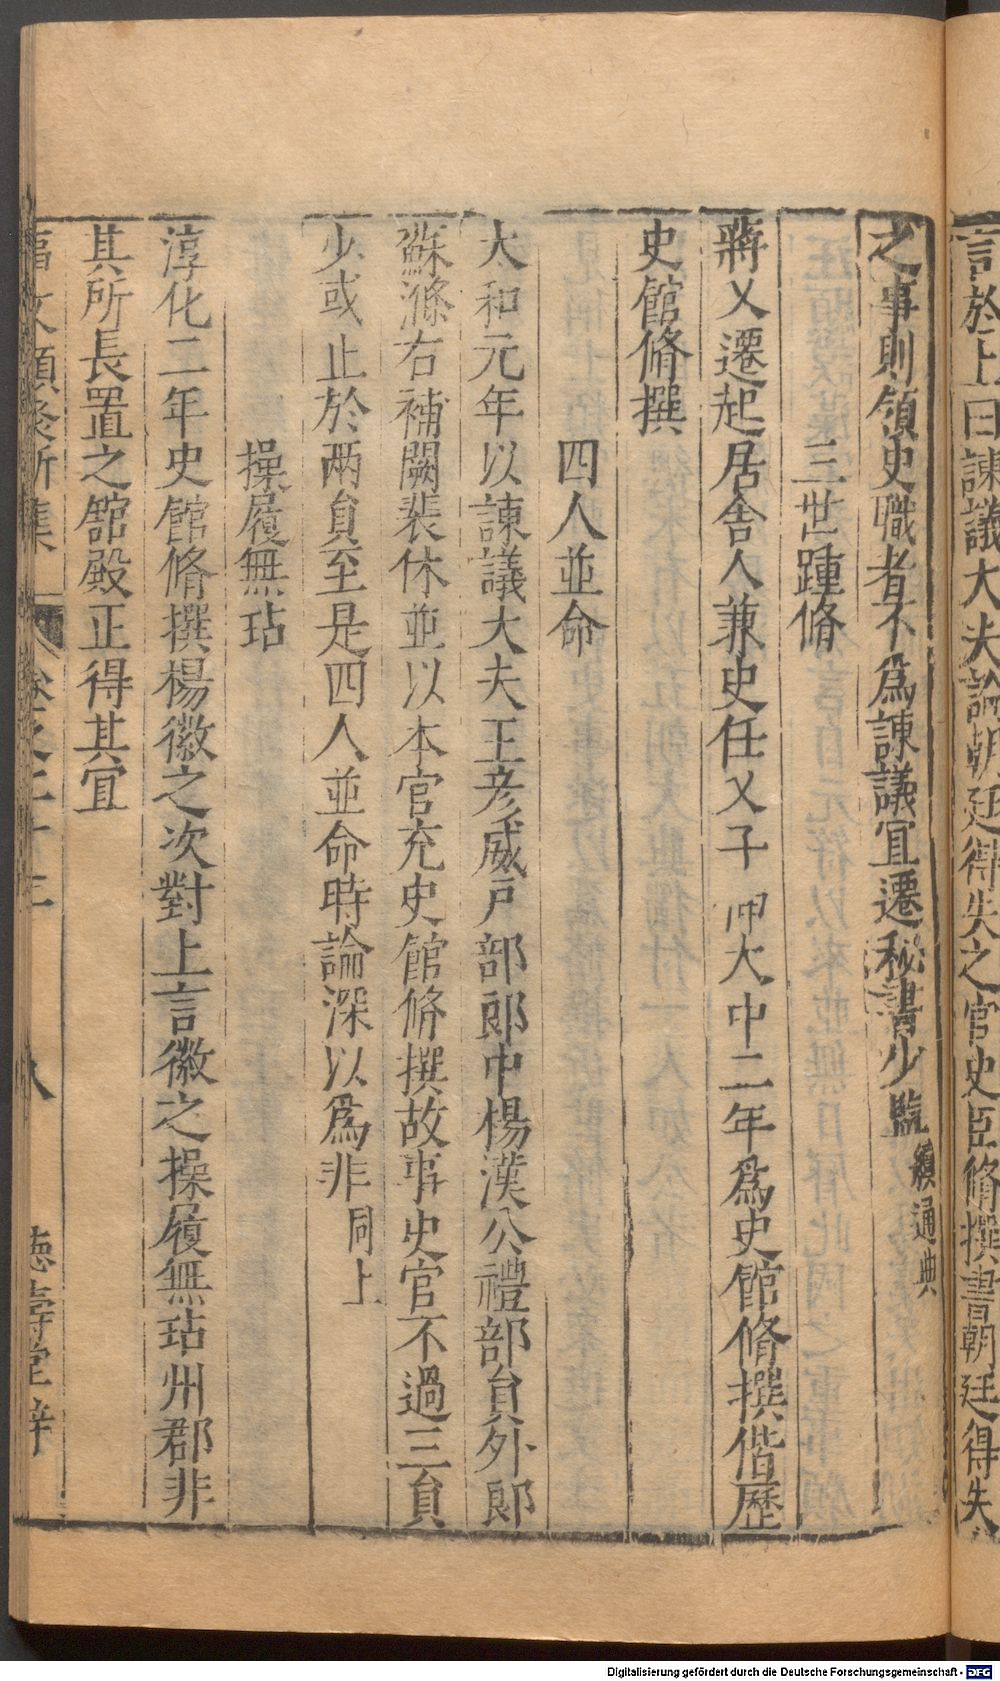 言於上曰諫議大夫論朝廷得失之官史臣脩撰書朝廷得失
之事則領史職者不爲諫議宜遷秘書少監續通典
三世踵脩
蔣乂遷起居舍人兼史任乂子 伸大中二年爲史館脩撰偕歷
史館脩撰
四人並命
太和元年以諫議大夫王彦威戸部郞中楊漢公禮部貟外郞
蘇滌右補闕裴休並以本官充史館脩撰故事史官不過三貟
少或止於兩貟至是四人並命時論深以爲非同上
操履無玷
淳化二年史館脩撰楊徽之次對上言徽之操履無玷州郡非
其所長置之舘殿正得其宜
事文類聚新集 卷之二十三 八 德壽堂梓
Digitalisierung gefördert durch die Deutsche Forschungsgemeinschaft - DFG